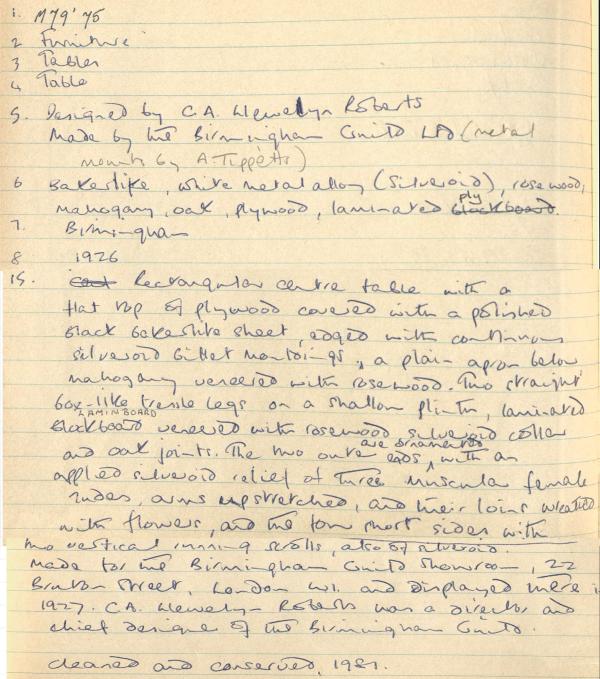 1. M79'75
2 Furniture
3 Tables
4 Table
5. Designed by C.A. Llewelyn Roberts
Made by the Birmingham Guild Ltd (metal
mounts by A Tippetts)
6 Bakerlike, white metal alloy (silveroid), rosewood,
mahogany, oak, plywood, laminated ply blackboard.
7. Birmingham
8 1926
15. Rectangular centre table with a
flat top of plywood covered with a polished
black bakerlite sheet, edged with continuous
silveroid billet mouldings, a plain apron below
mahogany veneered with rosewood. Two straight
box-like trestle legs on a shallow plinth, laminated
LAMINBOARD
blockboard veneered with rosewood silveroid collar
and oak joints. The two outer ends are ornamented with an
applied silveroid relief of three muscular female
nudes, arms upstretched, and their loins wreathed
with flowers, and the four short sides with
two vertical running scrolls, also of silveroid.
Made for the Birmingham Guild showroom, 22
Bruton Street, London W1. and displayed there in
1927. C.A. Llewelyn Roberts was a director and
chief designer of the Birmingham Guild.
Cleaned and conserved, 1981.